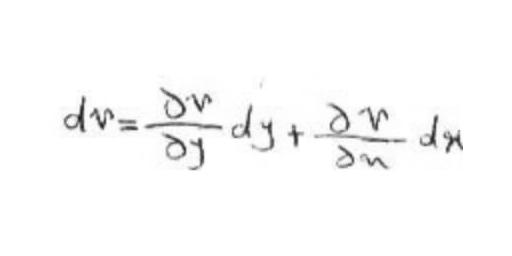 dv = ∂v/∂y dy + ∂v/∂x dx